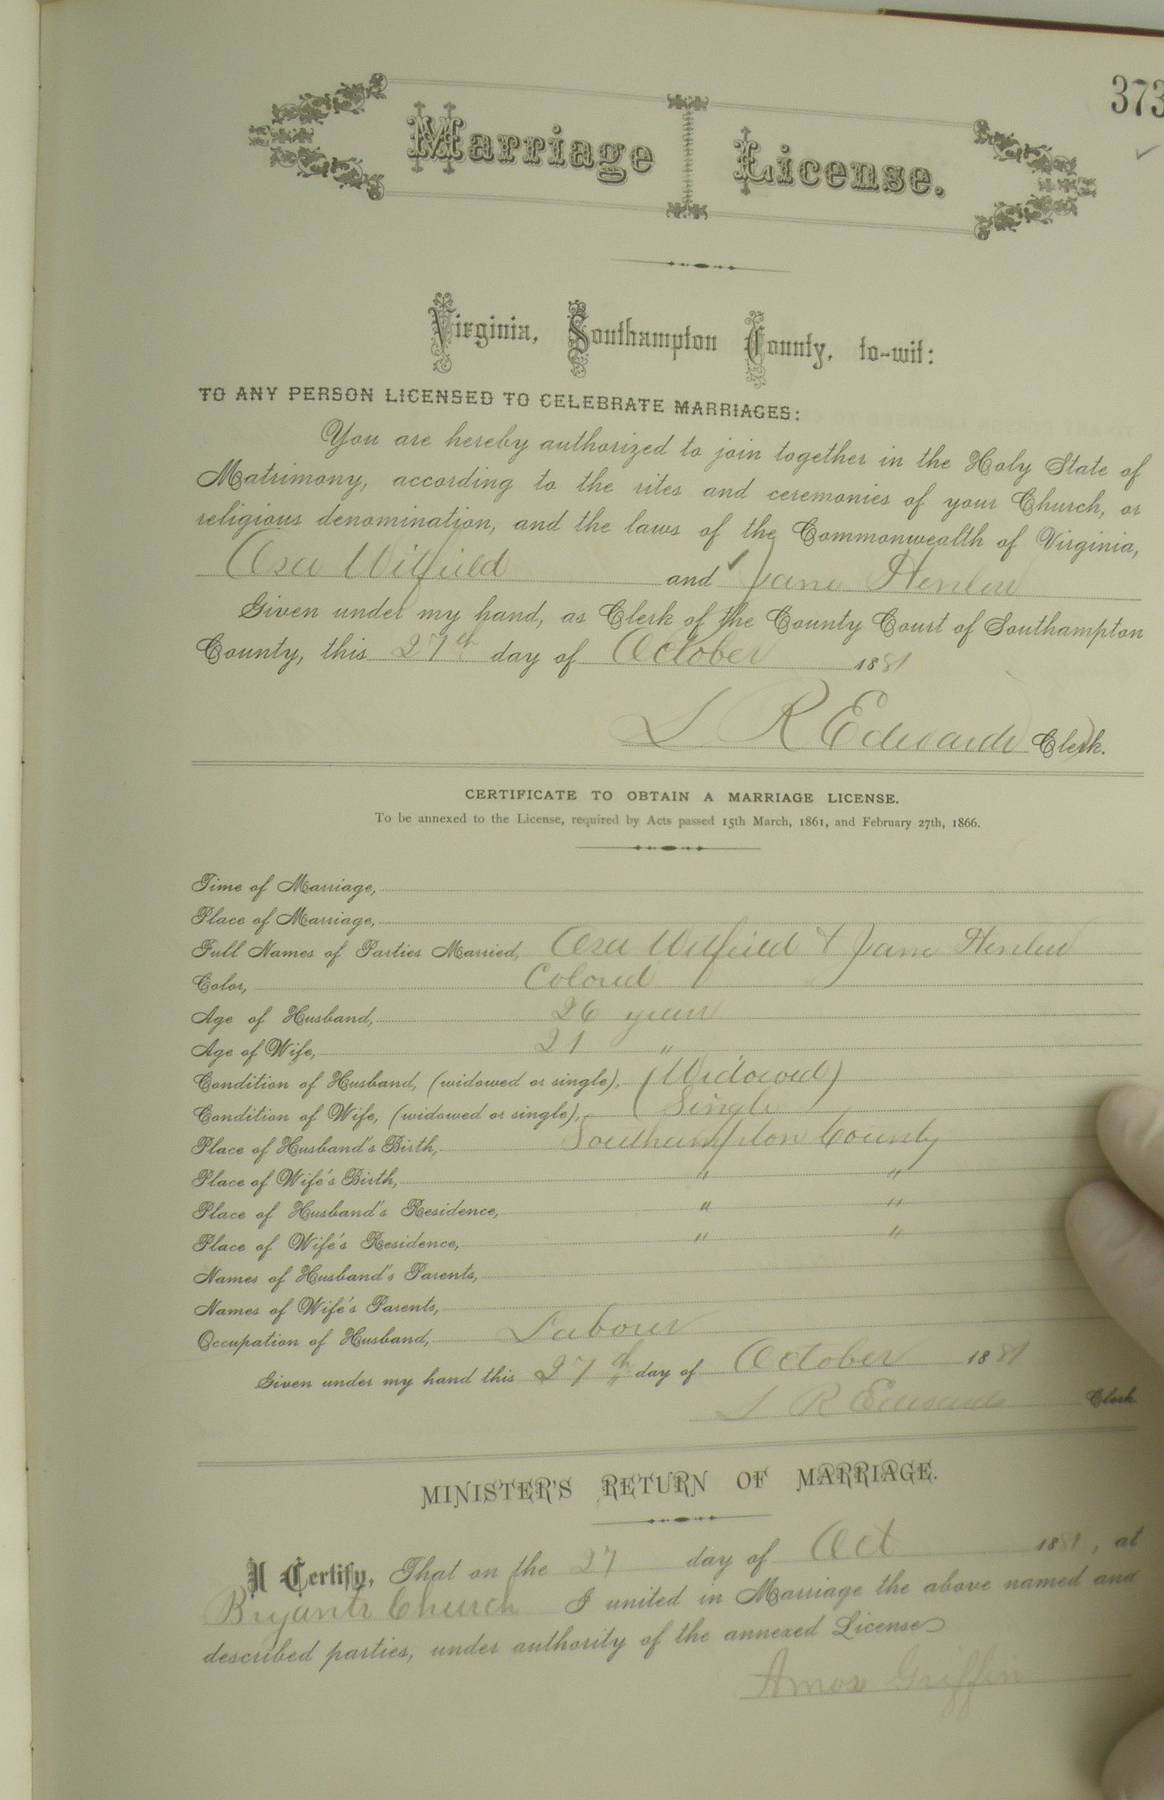 373
Marriage License.
Virginia, Southampton County, to-wit:
TO ANY PERSON LICENSED TO CELEBRATE MARRIAGES:
You are hereby authorized to join together in the Holy State of
Matrimony, according to the rites and ceremonies of your Church, or
religious denomination, and the laws of the Commonwealth of Virginia,
Asa Witfield and Jane
Given under my hand, as Clerk of the County Court of Southampton
County, this 27th day of October 1881
L R Edwards Clerk.
CERTIFICATE TO OBTAIN A MARRIAGE LICENSE.
To be annexed to the License, required by Acts passed 15th March, 1861, and February 27th, 1866.
Time of Marriage,
Place of Marriage,
Full Names of Parties Married, Asa Witfield & Jane
Color, Colored
Age of Husband, 26 years
Age of Wife, 21 "
Condition of Husband, (widowed or single), (Widowed)
Condition of Wife, (widowed or single), (Single
Place of Husband's Birth, Southampton County
Place of Wife's Birth, " "
Place of Husband's Residence, " "
Place of Wife's Residence, " "
Names of Husband's Parents,
Names of Wife's Parents,
Occupation of Husband, Laborer
Given under my hand this 27th day of October 1881
L R Edwards Clerk
MINISTER'S RETURN OF MARRIAGE.
I Certify, That on the 27 day of Oct 1881, at
Bryants Church I united in Marriage the above named and
described parties, under authority of the annexed License
Amos Griffin